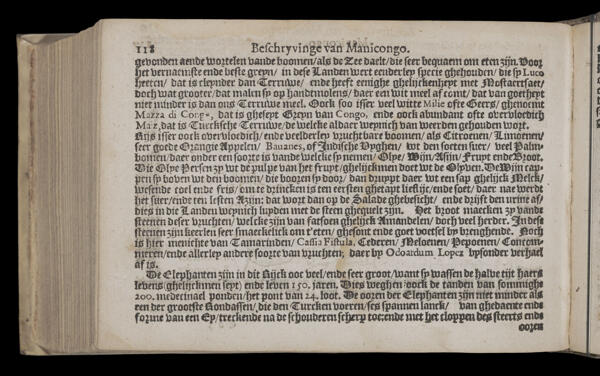 118 Beschryvinge van Manicongo.
gevonden aende wortelen vande boomen/als de Zee daelt/die seer bequaem om eten zijn. Voor
het vernaemste ende beste greyn/ in dese Landen wert eenderley specie ghehouden/ die sy Luco
heeten/ dat is cleynder dan Terruwe/ ende heeft eenighe ghelijckenheyt met Mostaertsaet/
doch wat grooter/dat malen sy op handtmolens/ daer een wit meel af comt/ dat van goetheyt
niet minder is dan ons Terruwe meel. Oock soo isser veel witte Milie ofte Geers/ ghenoemt
Mazza di Congo, dat is gheseyt Greyn van Congo, ende oock abundant ofte overvloedich
Maiz, dat is Turckische Terruwe/de welcke aldaer weynich van weerden gehouden wort.
Rijs isser oock overvloedich/ ende veelderley vruchtbare boomen/ als Citroenen/ Limoenen/
seer goede Orangie Appelen/ Bananes, of Indische Vyghen/ wt den sorten suer/ veel Palm-
boomen/daer onder een soorte is vande welcke sy nemen/ Olye/ Wijn/Asijn/ Fruyt ende Broot.
Die Olye Persen zy wt de pulpe van het fruyt/ghelijckmen doet wt de Olyven. De Wijn cap-
pen sy boven wt den boomen/ die booren sy door/ dan druypt daer wt een sap ghelijck Melck/
wesende coel ende fris/ om te drincken is ten eersten ghetapt lieflijc/ende soet/ daer nae werdt
het suer/ende ten lesten Azijn: dat wort dan op de Salade ghebesicht/ ende drijft den urine af/
dies in die Landen weynich luyden met de steen ghequelt zijn. Het broot maecken zy vande
steenen deser vruchten/ welcke zijn van fatsoen ghelijck Amandelen/ doch veel herder. In dese
steenen zijn keerlen seer smaeckelick om t'eten/ ghesont ende goet voetsel by brenghende. Noch
is hier menichte van Tamarinden/ Cassia Fistula, Cederen/ Meloenen/ Pepoenen/ Concom-
meren/ende allerley andere soorte van vruchten; daer by Odoardum Lopez bysonder verhael
af is.
De Elephanten zijn in dit Rijck oock veel/ende seer groot/want sy wassen de halve tijt haers
levens (ghelijckmen seyt) ende leven 150. jaren. Dies weghen oock de tanden van sommighe
200. medecinael ponden/het pont van 24. loot. De ooren der Elephanten zijn niet minder als
een der grootste Rondassen/ die den Turcken voeren/ses spannen lanck/ van ghedaente ende
forme van een Ey/treckende na de schouderen scherp toe:ende met het cloppen des steerts ende
ooren